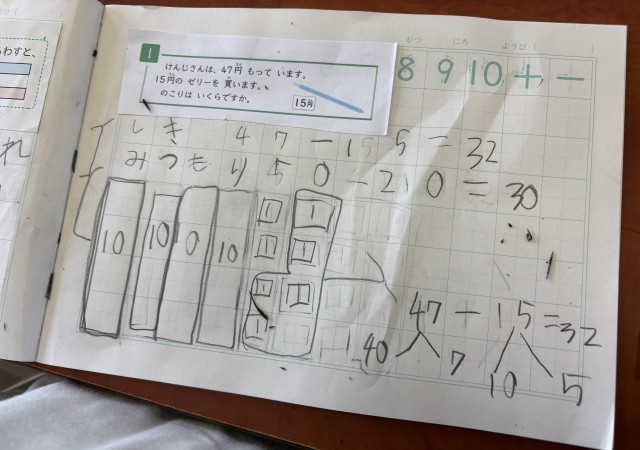 1
けんじさんは、47円 もって います。
15円の ゼリーを 買います。
のこりは いくらですか。
15円
がつ にち ようび ( )
8 9 10 + , −
しき 47−15=32
みつもり 50−20=30
10 10 10 10
1
47−15=32
40 7 10 5
わすと、
れ